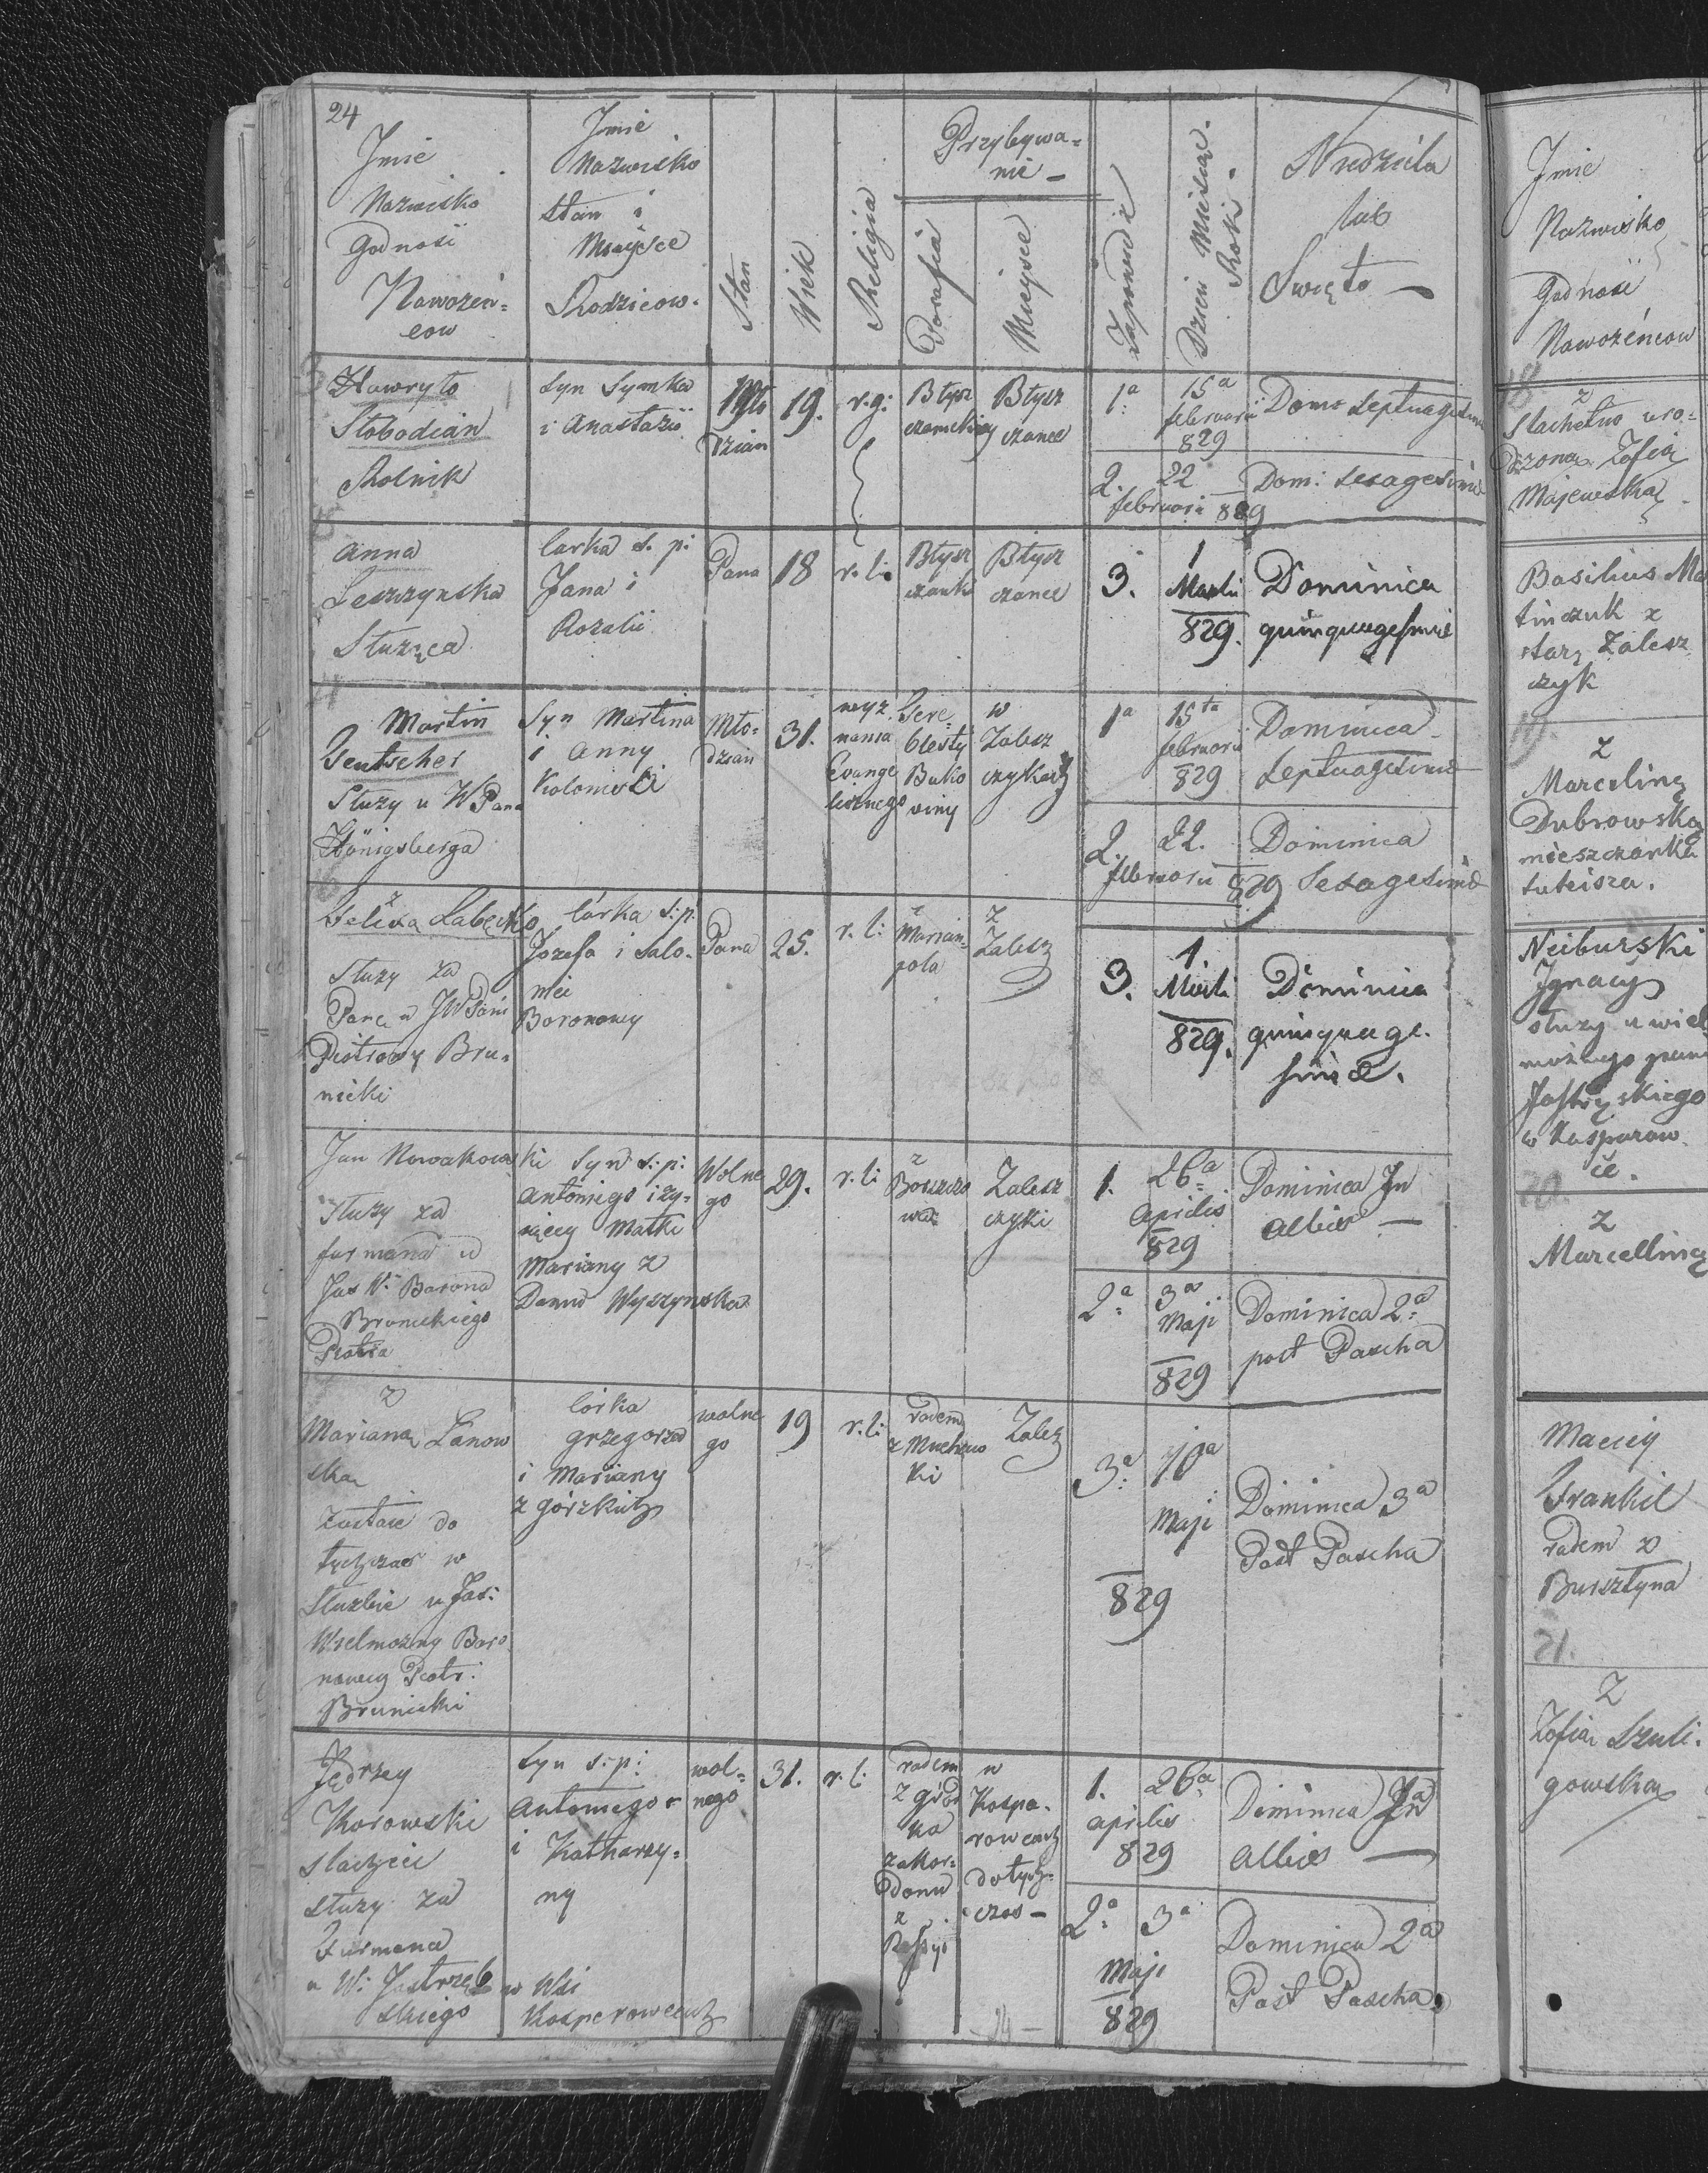 24
Jmie
Nazwisko
Godnosć
Nowożeń=
cow
Jmie
Nazwisko
stan i
Mieyśce
Rodzicow.
Stan
Wiek
Religia
Przybywa=
nie -
Parafia
Mieysce
Zapowiedź
Dzień Miesiąc.
Roki.
Niedziela
lub
Swięto -
Hawryło
Słobodian
Rolnik
syn Symka
i Anastazii
Mło
dzian
19.
r.g:
Błysz
czanskiey
Błysz
czance
1ª
15ª
februarii
829
Dom: Septuagesima
2.
22
februarii 829
Dom: Sexagesima
Anna
Leszczynska
Służąca
Corka s. p:
Jana i
Rozalii
Pana
18
r. l:
Błysz
czanki
Błysz
czance
3.
1
Martii
829.
Dominica
quinquagesimæ
Martin
Służy u WPana
Königsberga
Syn Martina
i Anny
Kolonisti
Mło-
dzian
31.
wyz.
nania
Evange
licznego
Buko
winy
w
Zalesz
czykach
1ª
15ta
februarii
829
Dominica
Septuagesimæ
2.
22.
februarii
829
Dominica
Sexagesimæ
z
Felixa Labęcka
służy za
Panę u JWPani
Piotrowy Bru-
nicki
Córka s:p:
Jozefa i Salo-
mei
Boronowy
Pana
25.
r. l:
z
Marian-
pola
z
Zalesz
3.
1.
Marti
829.
Dominica
quinquage-
simæ.
Jan Nowakows
ki
służy za
furmana u
Jas W: Barona
Brunickiego
Piotra
syn s:p:
Antoniego i ży-
iącey Matki
Mariany z
Domu Wyszynska
Wolne
go
29.
r. l:
z
Zalesz
czyki
1.
26ª
Aprilis
829
Dominica In
Albis -
2ª
3ª
Maji
829
Dominica 2ª
post Pascha
z
Marianą Lanow
ską
zostaie do
tychczas w
służbie u Jas:
Wielmożny Baro
nowey Piotr:
Brunicki
Córka
Grzegorza
i Mariany
z Górzkich
wolne
go
19
r. l:
rodem
Zalesz
3ª
10ª
Maji
829
Dominica 3ª
Post Pascha
Jędrzey
Korowski
służy za
Furmana
u W: Jastrzęb
skiego
Syn s:p:
Antoniego
i Katharzy=
ny
w Wsi
Kasperowcach
wol=
nego
31.
r. l:
rodem
z Grod
ka
zakor=
donu
z
w
Kaspe-
rowcach
dotych=
czas -
1.
26ª
Aprilis
829
Dominica In
Albis -
2ª
3ª
Maji
829
Dominica 2ª
Post Pascha
Jmie
Nazwisko
Godnosć
Nowożeńcow
18
z
Slachetno uro=
dzoną Zofią
Majewską
Basilius Ma
tinczuk z
starz Zalesz
czyk
19.
z
Marceliną
Dubrowską
mieszczanką
tuteisza.
Neiburski
Jgnacy
służy u wiel
możnego pana
w Kasparow
ce.
20.
z
Marcelliną
Maciey
Frankil
rodem z
Bursztyna
21.
z
Zofią Szuli-
gowską